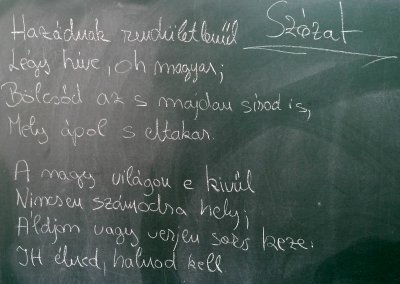 Szózat
Hazádnak rendületlenül
Légy híve, oh magyar;
Bölcsőd az s majdan sírod is,
Mely ápol s eltakar.
A nagy világon e kívül
Nincsen számodra hely;
Áldjon vagy verjen sors keze:
Itt élned, halnod kell